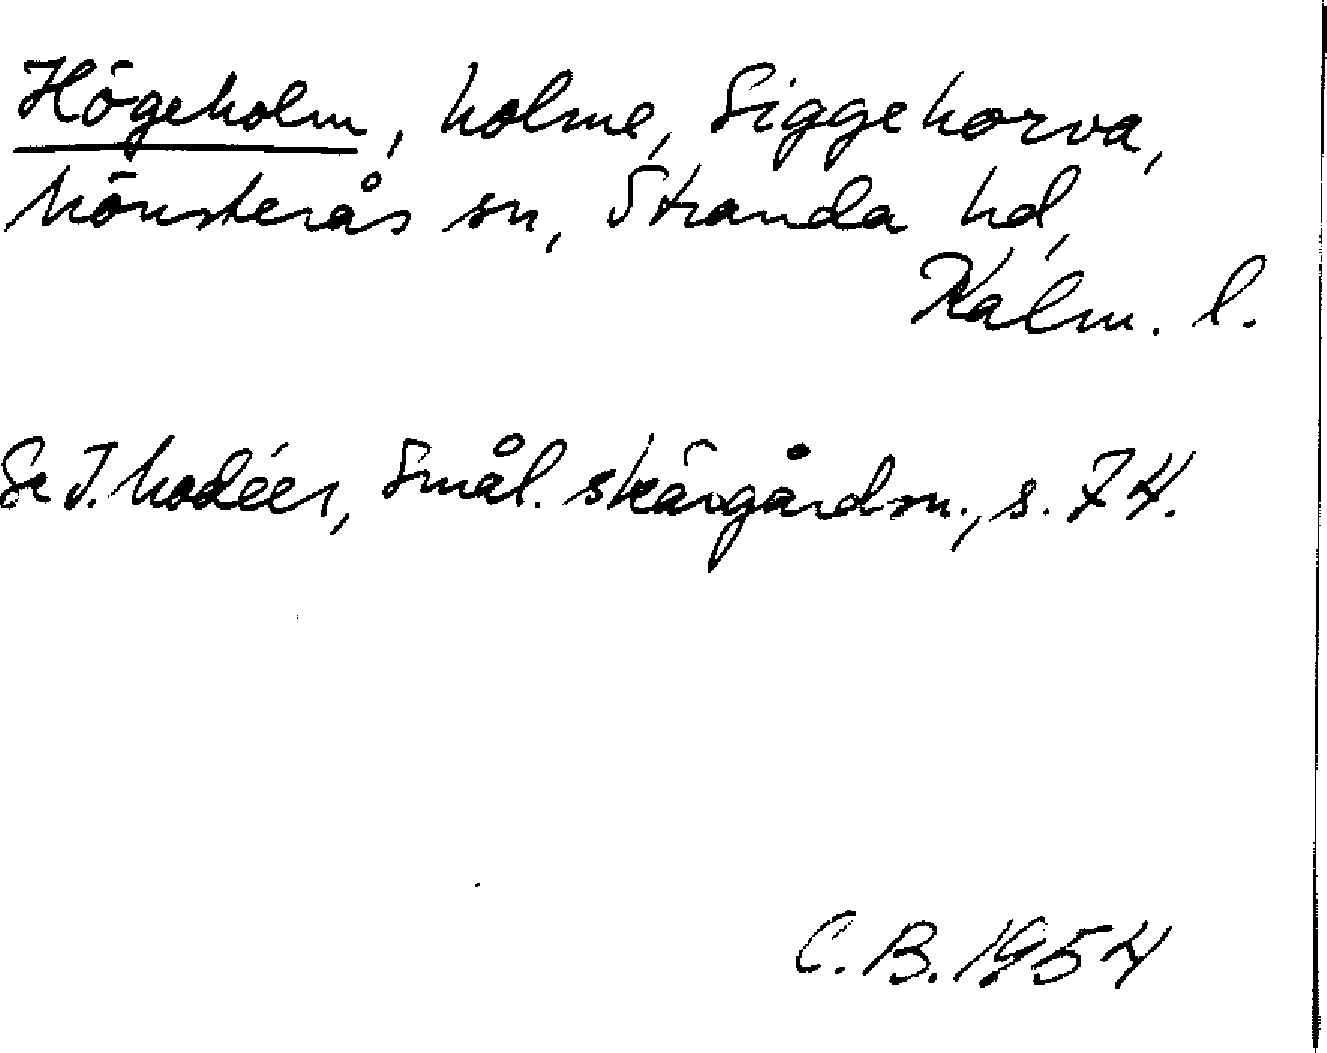 Högeholm, holme, Siggehorva,
Mönsterås sn, Stranda hd,
Kalm. l.
Se I. Modéer, Smål. skärgårdsn., s. 74.
C. B. 1954